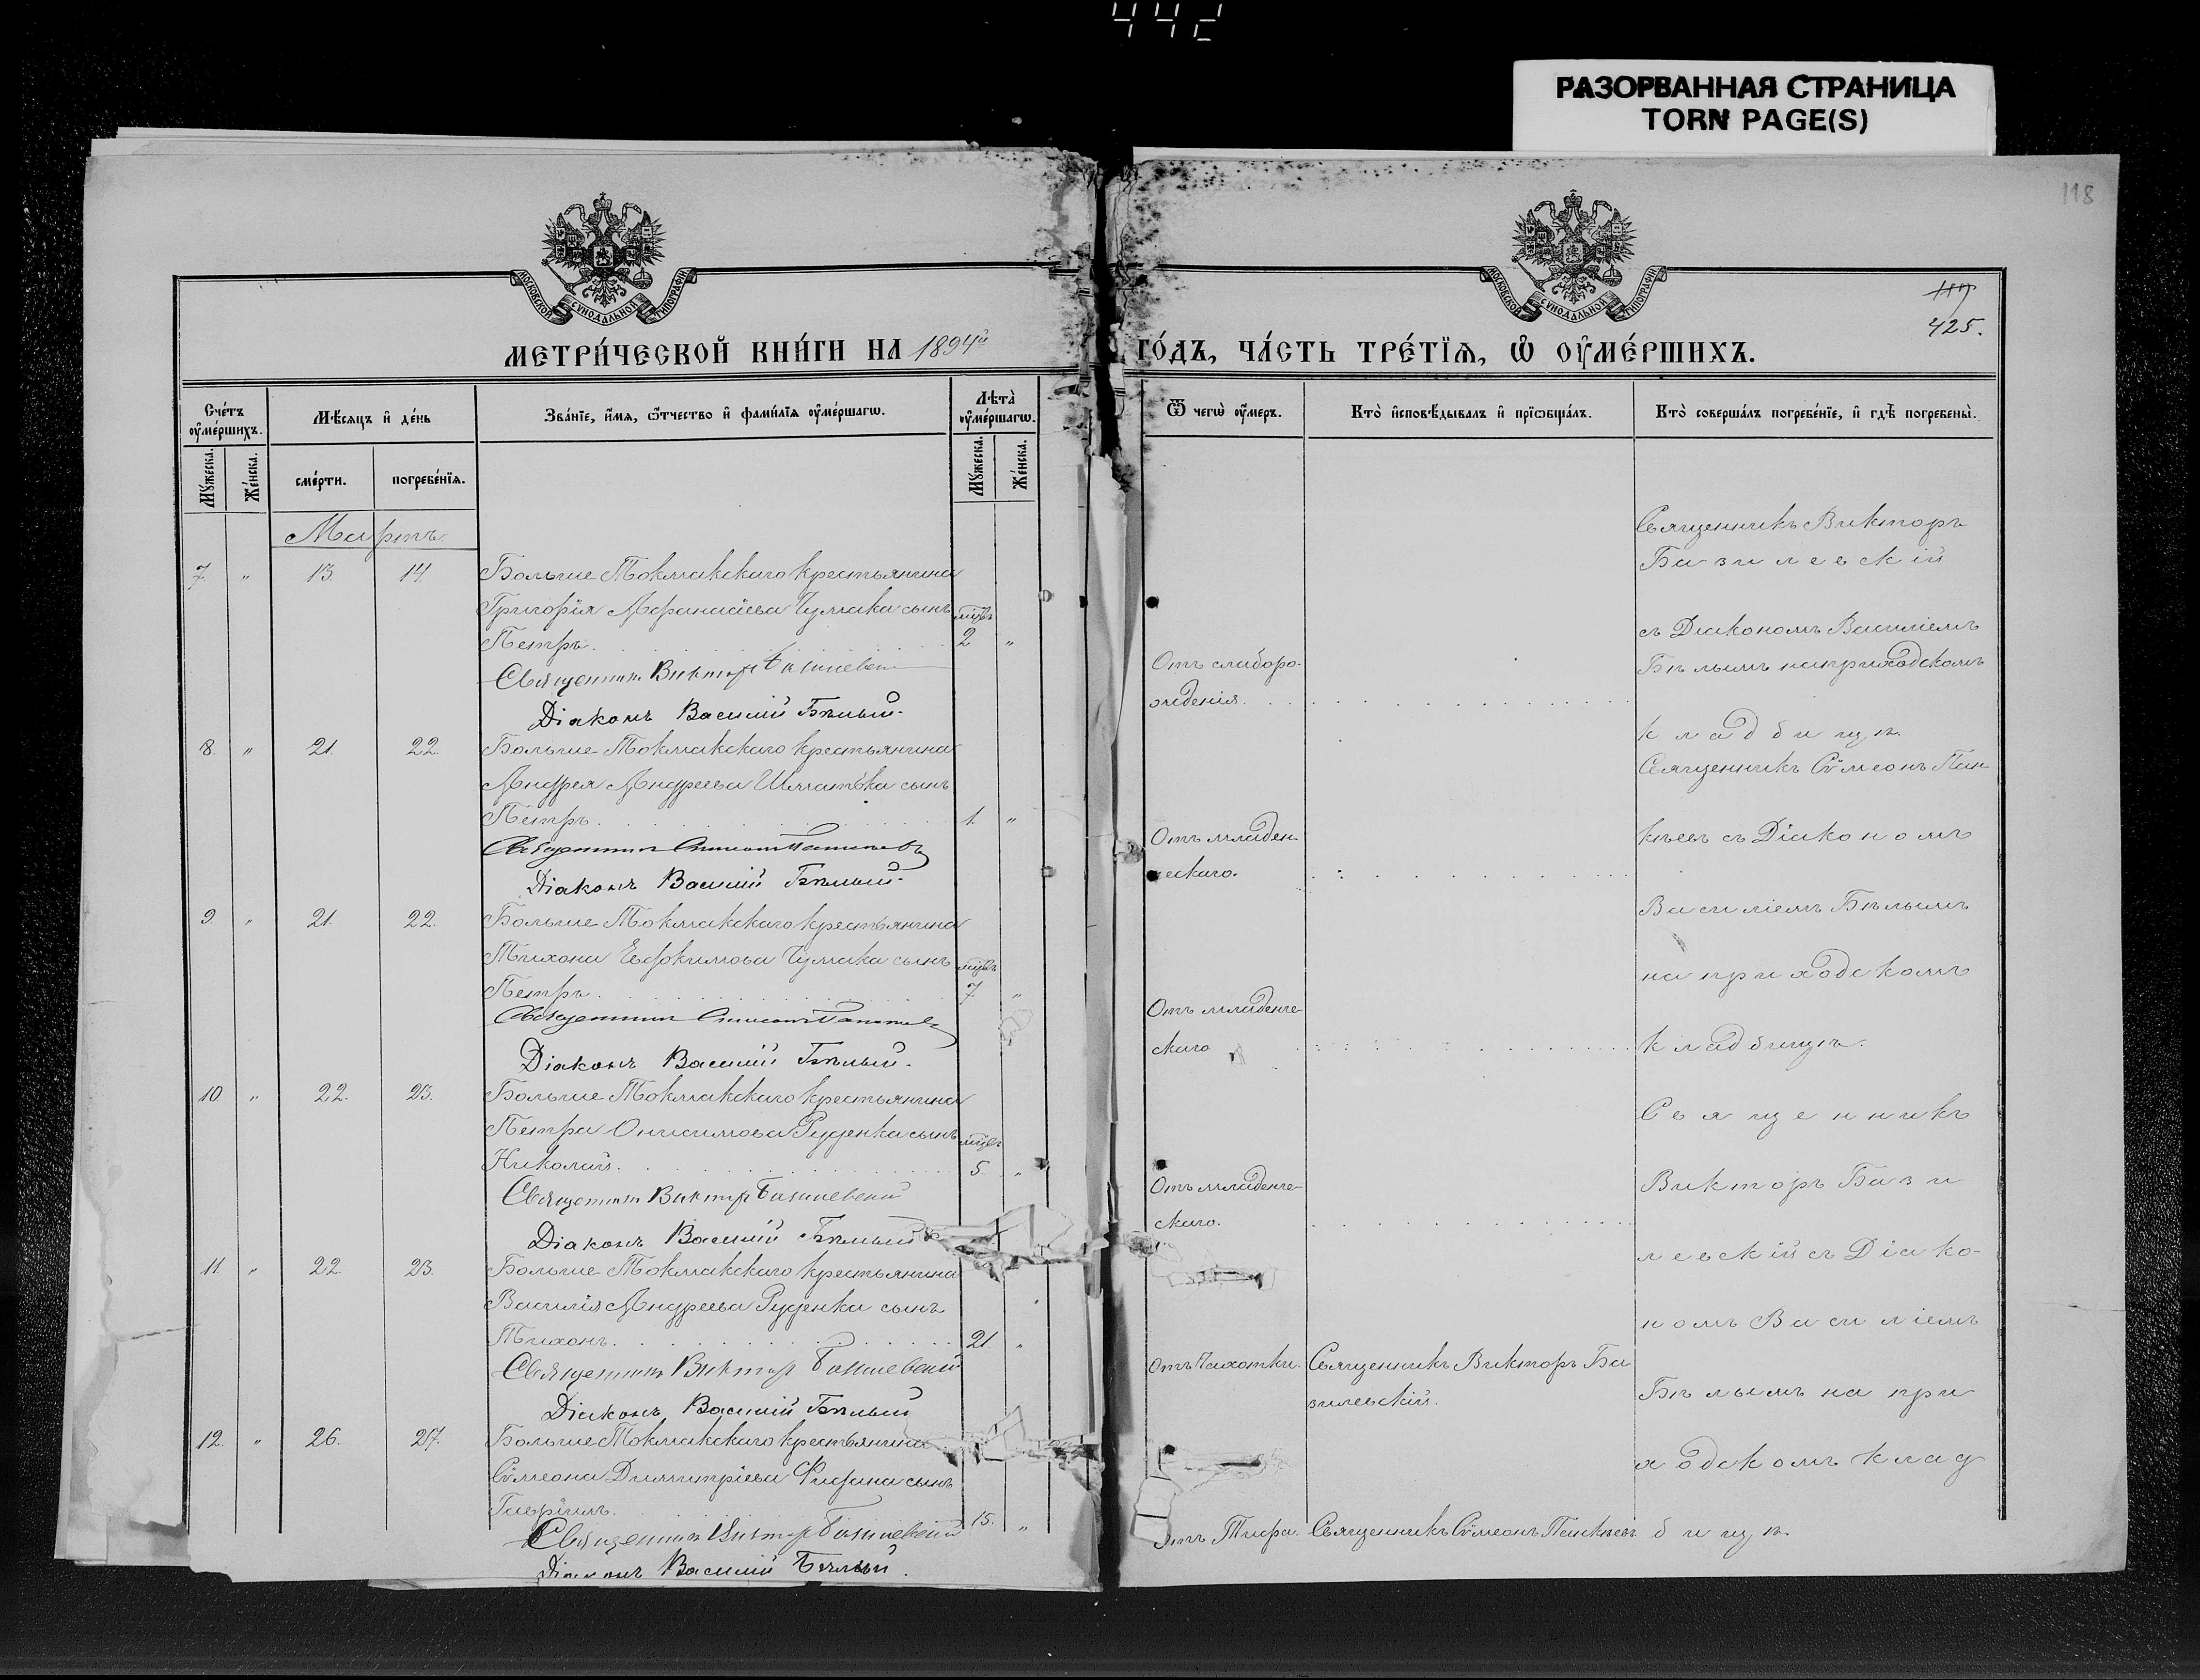 442
РАЗОРВАННАЯ СТРАНИЦА
TORN PAGE(S)
118
МОСКОВСКОЙ СУНОДАЛЬНОЙ ТИПОГРАФІИ
МОСКОВСКОЙ СУНОДАЛЬНОЙ ТИПОГРАФІИ
425.
МЕТРИ́ЧЕСКОЙ КНИ́ГИ НА 1894й
ГО́ДЪ, ЧА́СТЬ ТРЕ́ТІѦ, Ѡ ОУ҆МЕ́РШИХЪ.
Сче́тъ оу҆ме́ршихъ.
Мѣ́сяцъ и҆ де́нь
Зва́нїе, и҆́мя, ѻ҆́тчество и҆ фами́лїя оу҆ме́ршагѡ.
Лѣ́та оу҆ме́ршагѡ.
Ѿ чегѡ̀ оу҆́меръ.
Кто̀ и҆сповѣ́дывалъ и҆ прїѡбща́лъ.
Кто̀ соверша́лъ погребе́нїе, и҆ гдѣ̀ погребены̀.
Мꙋ́жеска.
Же́нска.
сме́рти.
погребе́нїя.
Мꙋ́жеска.
Же́нска.
Мартъ.
7. " 13. 14. Больше-Токмакскаго крестьянина
Григорія Афанасіева Чумака сынъ мцъ
Петръ. 2 "
Священникъ Викторъ Базилевскій
Діаконъ Василій Бѣлый.
Отъ слаборо-
жденія.
Священникъ Викторъ
Базилевскій
съ Діакономъ Василіемъ
Бѣлымъ на приходскомъ
кладбищѣ.
8. " 21. 22. Больше-Токмакскаго крестьянина
Андрея Андреева Шматька сынъ
Петръ. 1. "
Священникъ Симеонъ
Діаконъ Василій Бѣлый.
Отъ младен-
ческаго.
Священникъ Сѵмеонъ Пан
кѣевъ съ Діакономъ
Василіемъ Бѣлымъ
на приходскомъ
кладбищѣ.
9. " 21. 22. Больше-Токмакскаго крестьянина
Тихона Евфимова Чумака сынъ мцъ
Петръ. 7. "
Священникъ Симеонъ
Діаконъ Василій Бѣлый.
Отъ младенче-
скаго
10 " 22. 23. Больше-Токмакскаго крестьянина
Петра Онисимова Руденка сынъ мцъ
Николай. 5. "
Священникъ Викторъ Базилевскій
Діаконъ Василій Бѣлый
Отъ младенче-
скаго.
Священникъ
Викторъ Бази
левскій съ Діако-
номъ Василіемъ
Бѣлымъ на при
ходскомъ клад
бищѣ.
11. " 22. 23. Больше-Токмакскаго крестьянина
Василія Андреева Руденка сынъ
Тихонъ. 21. "
Священникъ Викторъ Базилевскій
Діаконъ Василій Бѣлый
Отъ Чахотки.
Священникъ Викторъ Ба
зилевскій.
12. " 26. 27. Больше Токмакскаго крестьянина
Сѵмеона Димитріева сынъ
Гавріилъ. 15. "
Священникъ Викторъ Базилевскій
Діаконъ Василій Бѣлый.
Отъ Тифа.
Священникъ Сѵмеонъ Панкѣевъ